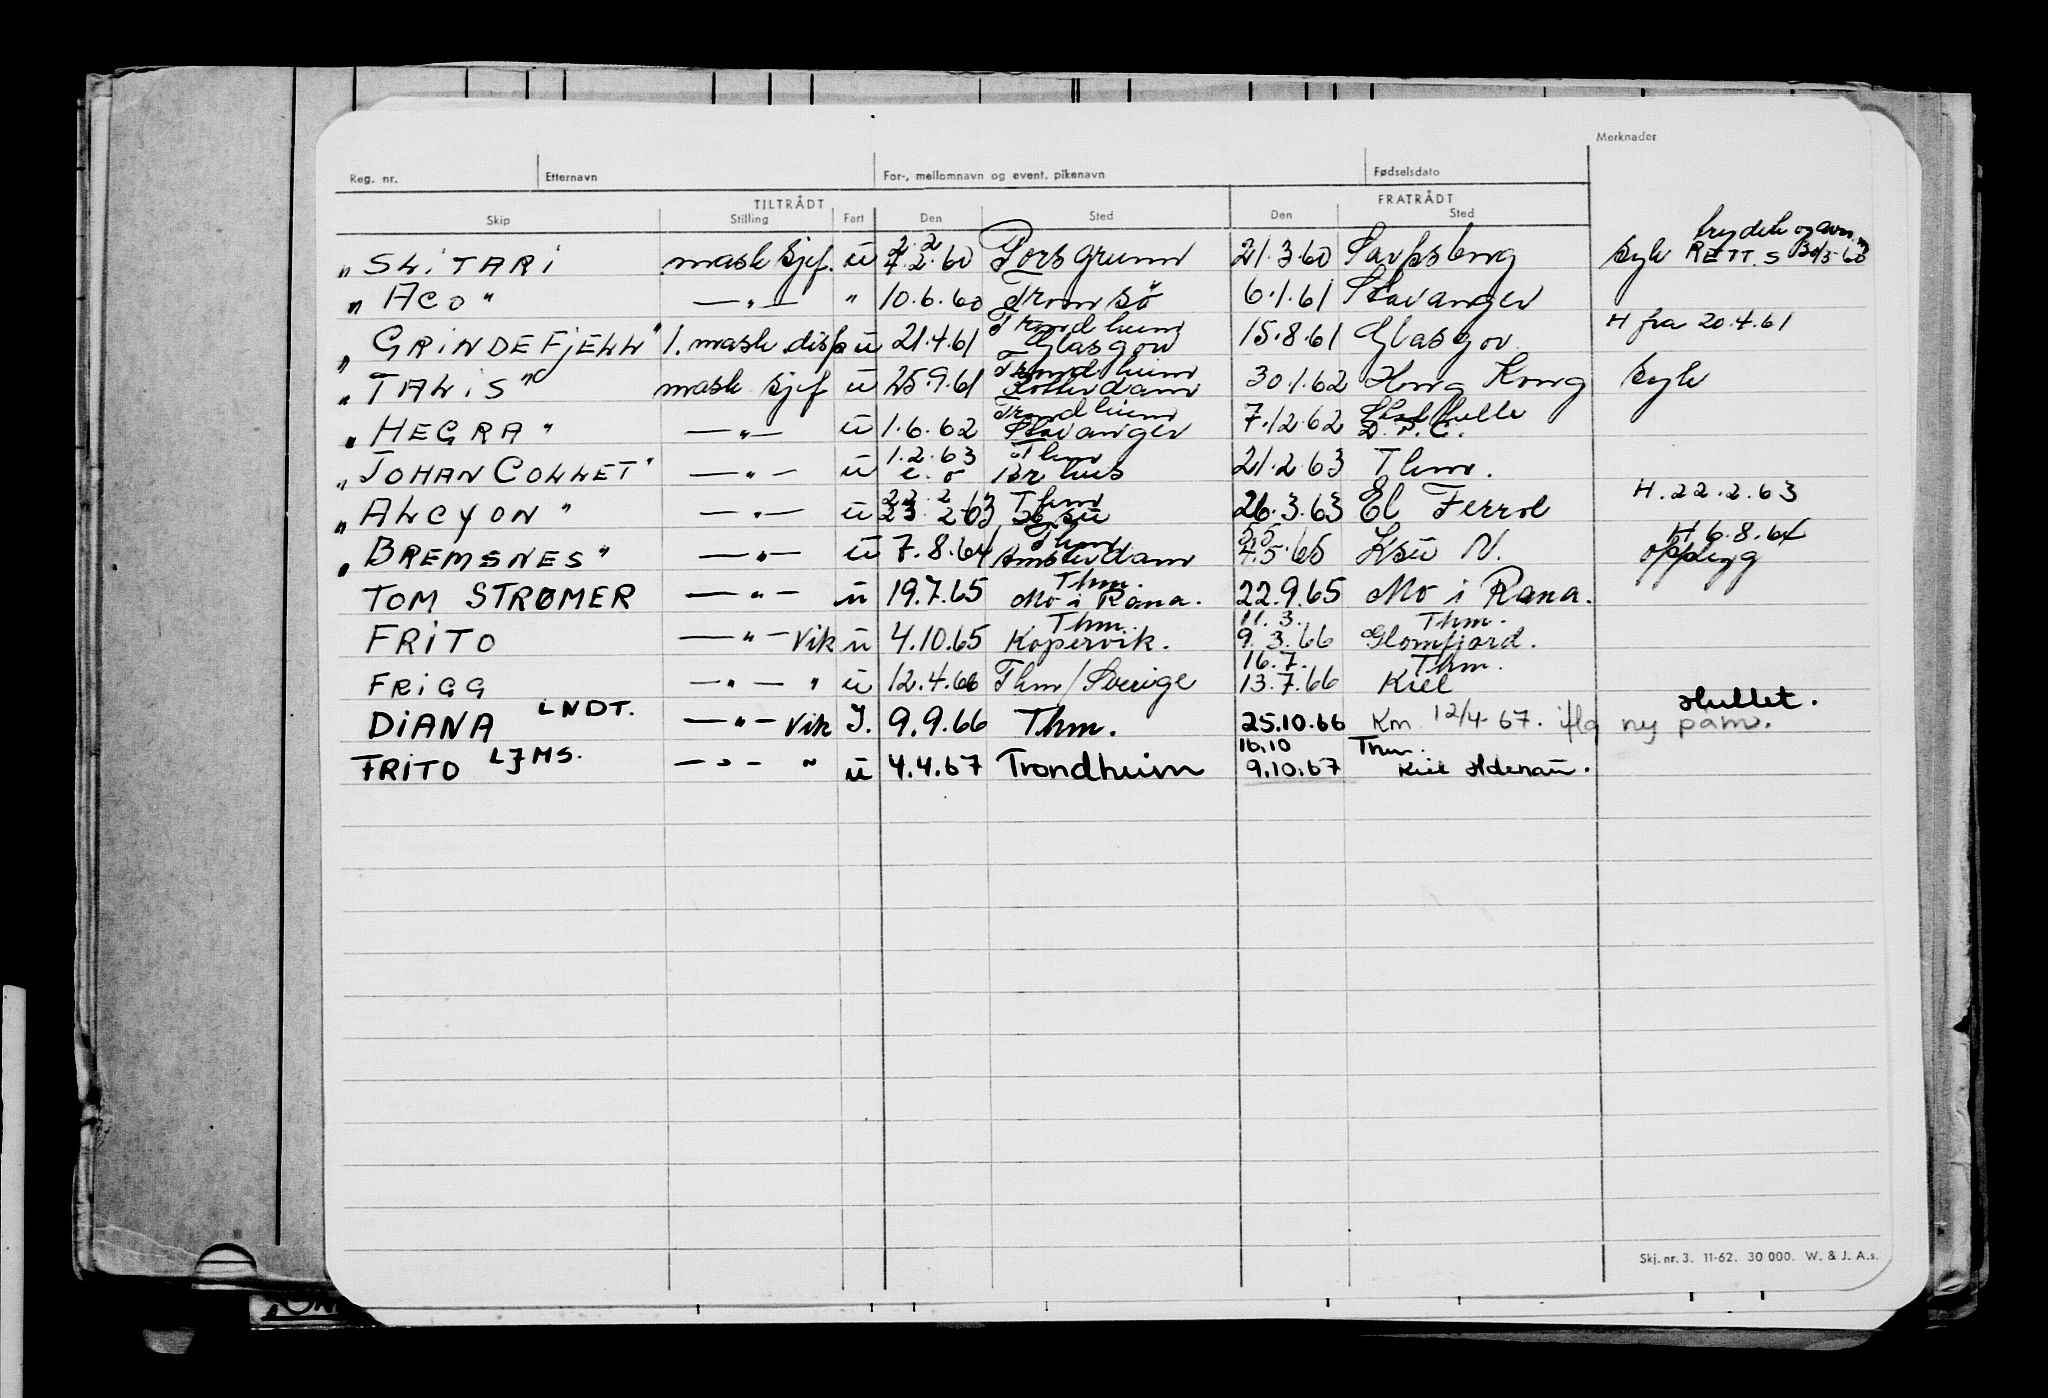 Merknader
Reg. nr. Etternavn For-, mellomnavn og event. pikenavn Fødselsdato
TILTRÅDT FRATRÅDT
Skip Stilling Fart Den Sted Den Sted
" SLITARI mask sjef. u 2.2 4.2.60 Porsgrunn 21.3.60 Sarpsborg syk RETT. S
" ACO " — " — " 10.6.60 Tromsö 6.1.61 Stavanger
" GRINDEFJELL " 1. mask disp u 21.4.61 Trondheim Glasgow 15.8.61 Glasgow H fra 20.4.61
" TALIS " mask sjef u 25.9.61 Trondheim Rotterdam 30.1.62 Hong Kong syk
" HEGRA " — " — u 1.6.62 Trondheim Stavanger 7.12.62
" JOHAN COLLET " — " — u 1.2.63 e. o Thm 21.2.63 Thm.
" ALCYON " — " — u 22.2 23.2-63 Thm 26.3.63 El Ferrol H. 22.2.63
" BREMSNES " — " — u 7.8.64 Thm Amsterdam 5.5 4.5.65 Ksu N. H 6.8.64 opplegg
TOM STRØMER — " — u 19.7.65 Thm. Mo i Rana. 22.9.65 Mo i Rana.
FRITO — " — Vik u 4.10.65 Thm. Kopervik. 11.3. 9.3.66 Thm. Glomfjord.
FRIGG — " — " u 12.4.66 Thm/Sverige 16.7. 13.7.66 Thm. Kiel
DIANA LNDT. — " — Vik I. 9.9.66 Thm. 25.10.66 Km 12/4-67. iflg ny påm. Hullet.
FRITO LJMS. — " — " u 4.4.67 Trondheim 16.10 9.10.67 Thm. Kiel Holtenau.
Skj. nr. 3. 11-62. 30 000. W. & J. A.s.